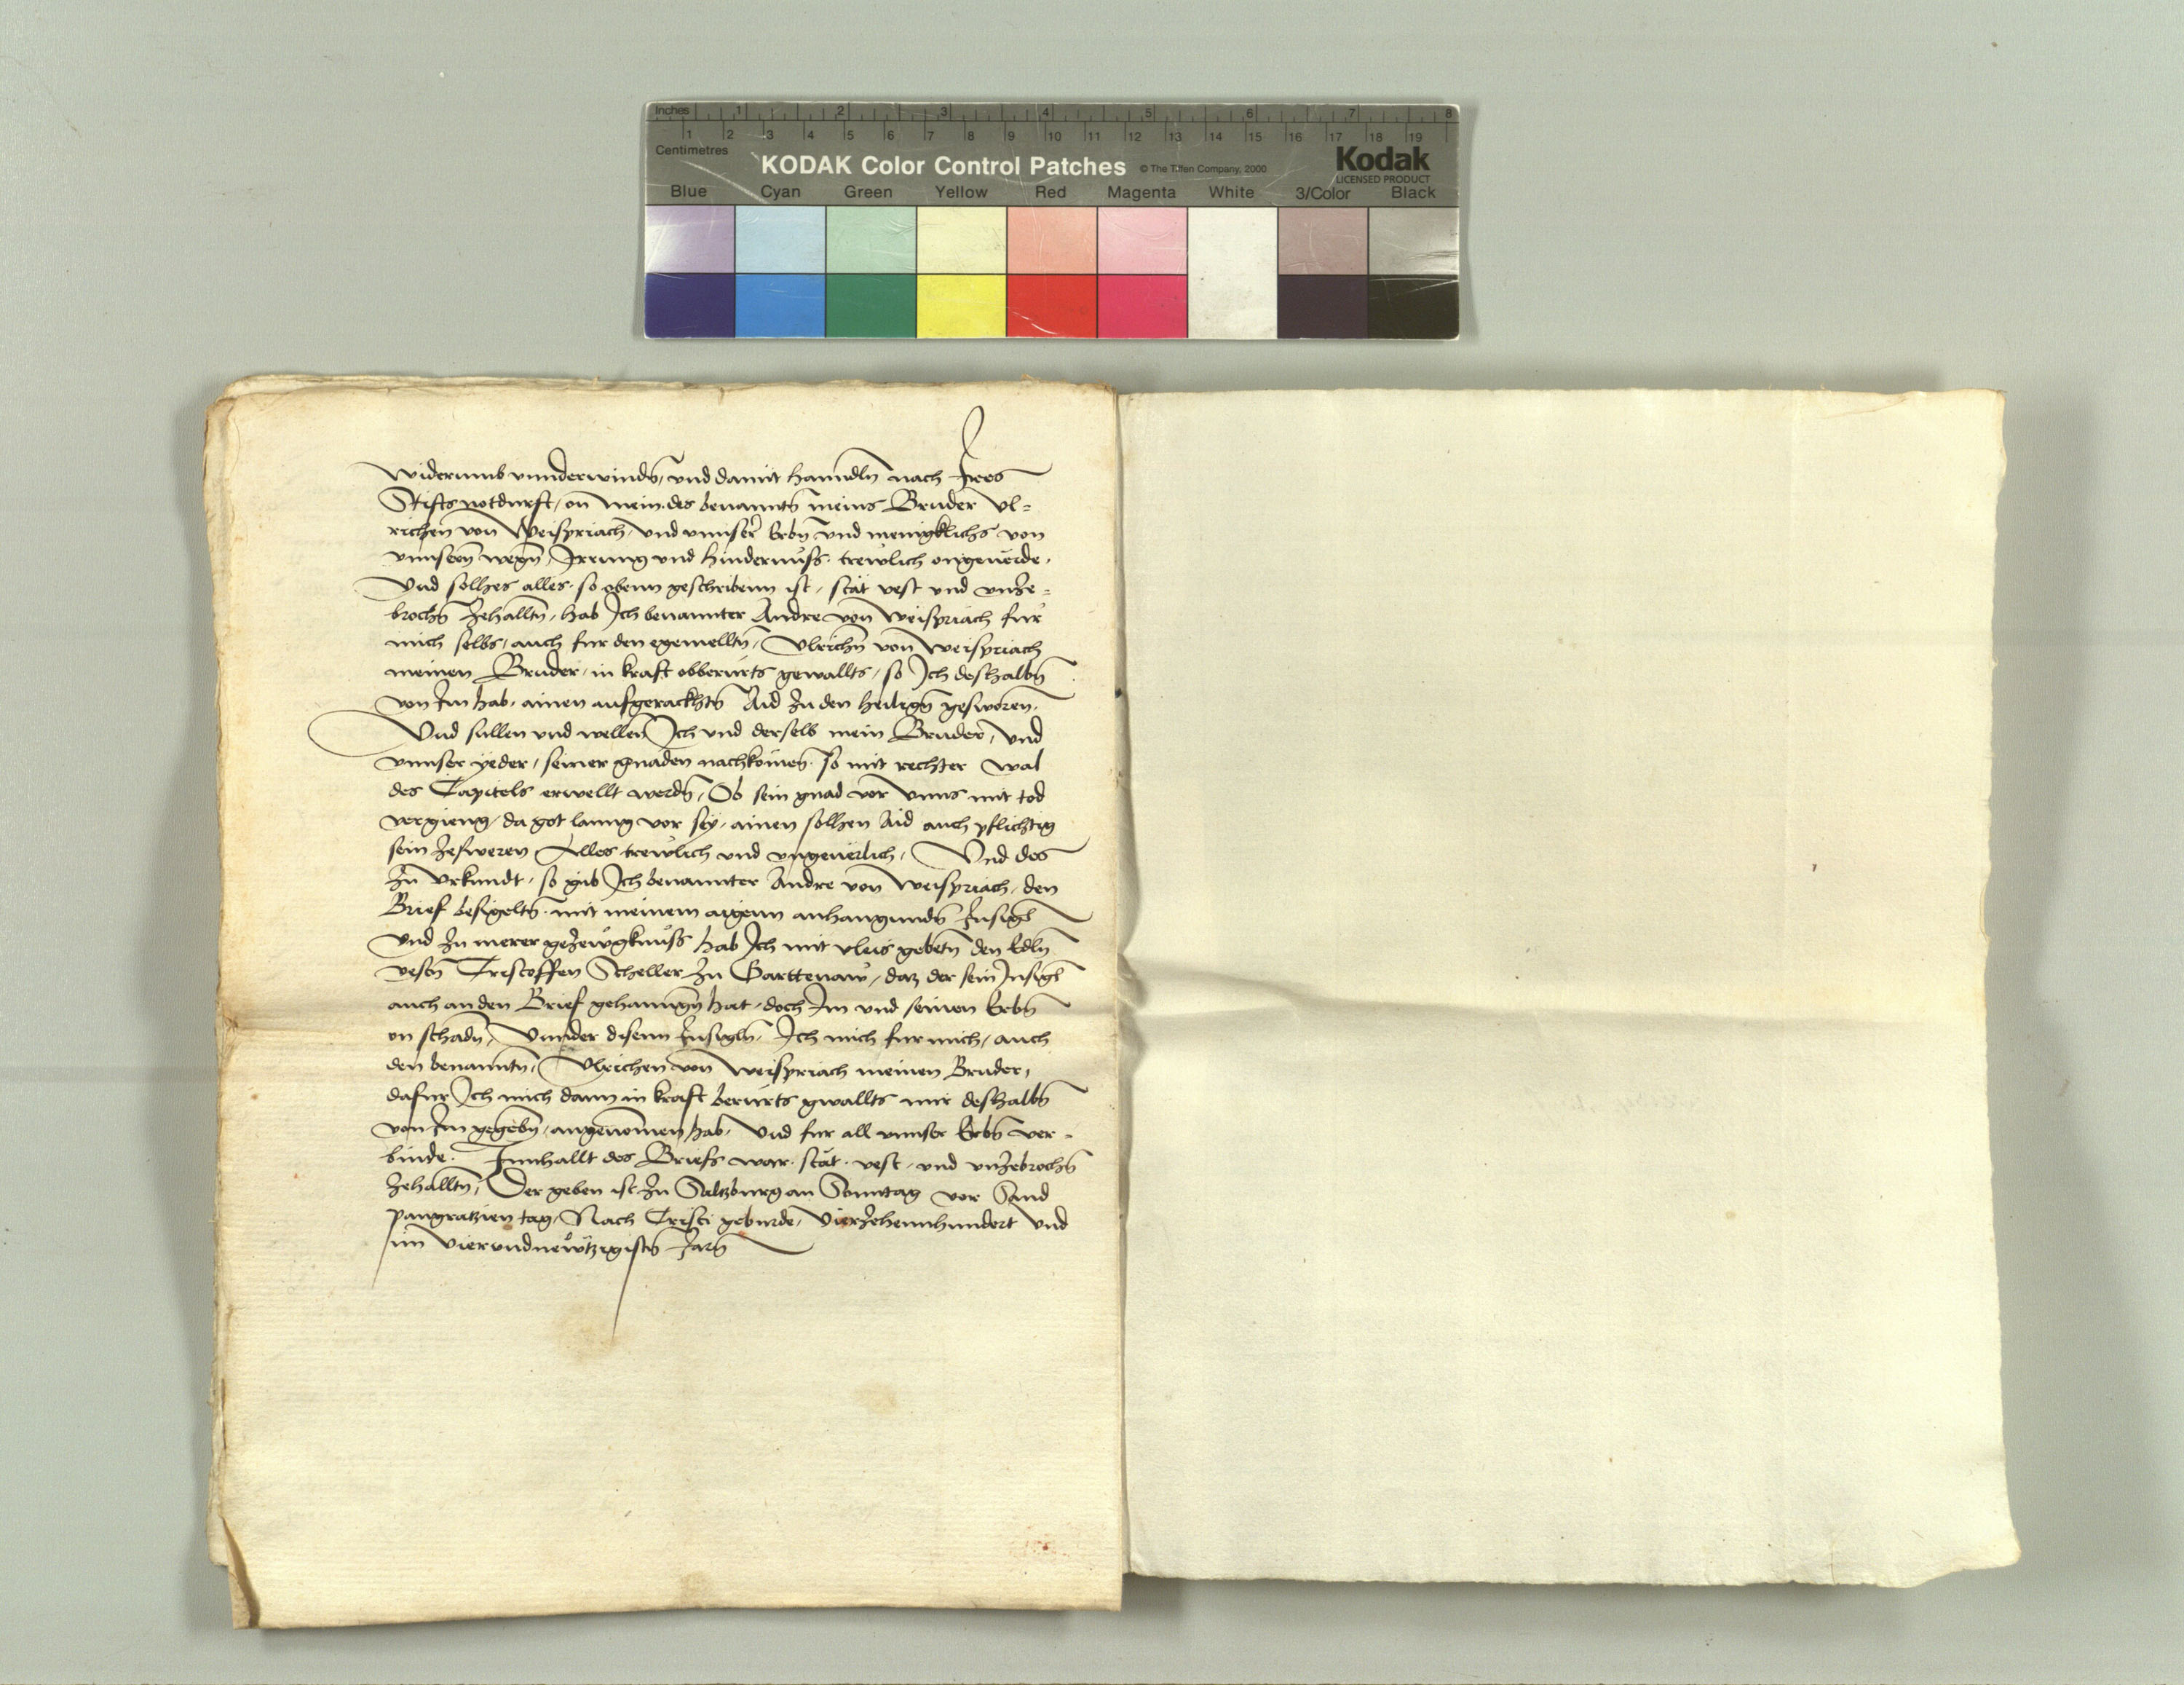 Inches 1 2 3 4 5 6 7 8
1 2 3 4 5 6 7 8 9 10 11 12 13 14 15 16 17 18 19
Centimetres
KODAK Color Control Patches © The Tiffen Company, 2000 Kodak
LICENSED PRODUCT
Blue Cyan Green Yellow Red Magenta White 3/Color Black
widerumb vnnderwindn̄, vnd damit hanndln̄ nach Jres
Stifts notdurft, on mein, des benanntn̄ meins Bruder Vl=
richen von Weispriach, vnd vnnser Erbn̄ vnd menigklichs von
vnnsern wegn̄, Jrrung vnd hindernüss, trewlich ongeuerde.
Vnd solhes alles, so obenn geschribenn ist, stät vest vnd vnze=
brochn̄ zehalltn̄, hab Jch benannter Andre von Weispriach für
mich selbs, auch fur den egemelltn̄, Vlrichn̄ von Weispriach
meinen Bruder, in kraft obberürts gewallts, so Jch deshalbn̄
von Jm hab, ainen aufgerackhtn̄ Aid zu den heilign̄ gesworen.
Vnd sullen vnd wellen Jch vnd derselb mein Bruder, vnd
vnnser yeder, seiner gnaden nachkomēn, so mit rechter wal
des Capitels erwellt werdn̄, Ob sein gnad vor vnns mit tod
vergieng, da got lanng vor sey, ainen solhen Aid auch pflichtig
sein zesweren, Alles trewlich vnd vngeuerlich, Vnd des
zu vrkundt, so gib Jch benannter Andre von Weispriach, den
Brief besigeltn̄, mit meinem aigenn anhangundn̄ Jnsigl
Vnd zu merer gezewgknüss hab Jch mit vleis gebetn̄ den Edln̄
vestn̄ Cristoffen Scheller zu Garttenaw, daz der sein Jnsigl
auch an den Brief gehanngn̄ hat, doch Jm vnd seinen Erbn̄
on schadn̄, Vnnder disenn Jnsigln̄, Jch mich fur mich, auch
den benanntn̄, Vlrichen von Weispriach meinen Bruder,
dafur Jch mich dann in kraft berürts gwallts mir deshalbn̄
von Jm gegebn̄, angenomēn hab, Vnd fur all vnnser Erbn̄ ver=
binde. Jnnhallt des Briefs war, stät, vest, vnd vnzebrochn̄
zehalltn̄, Der geben ist zu Saltzburg an Sonntag vor Sand
Panngratzien tag, Nach Cristi geburde, Vierzehennhundert vnd
im Vierundnewtzigistn̄ Jarn̄